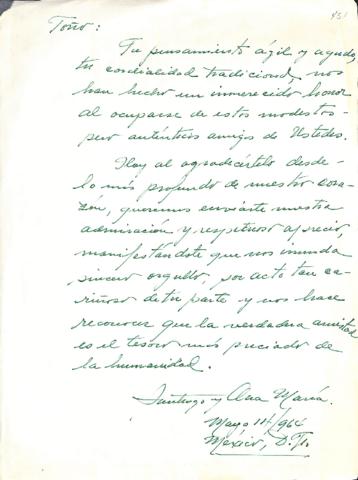 451
Toño:
Tu pensamiento ágil y agudo,
tu cordialidad tradicional, nos
han hecho un inmerecido honor
al ocuparse de estos modestos-
pero auténticos amigos de Ustedes.
Hoy al agradecértelo desde-
lo más profundo de nuestro cora-
zón, queremos enviarte nuestra
admiración y respetuoso aprecio,
manifestándote que nos inunda
sincero orgullo, por acto tan ca-
riñoso de tu parte y nos hace
reconocer que la verdadera amistad
es el tesoro más preciado de
la humanidad.
Santiago y Ana María.
Mayo 14/964
México, D.F.